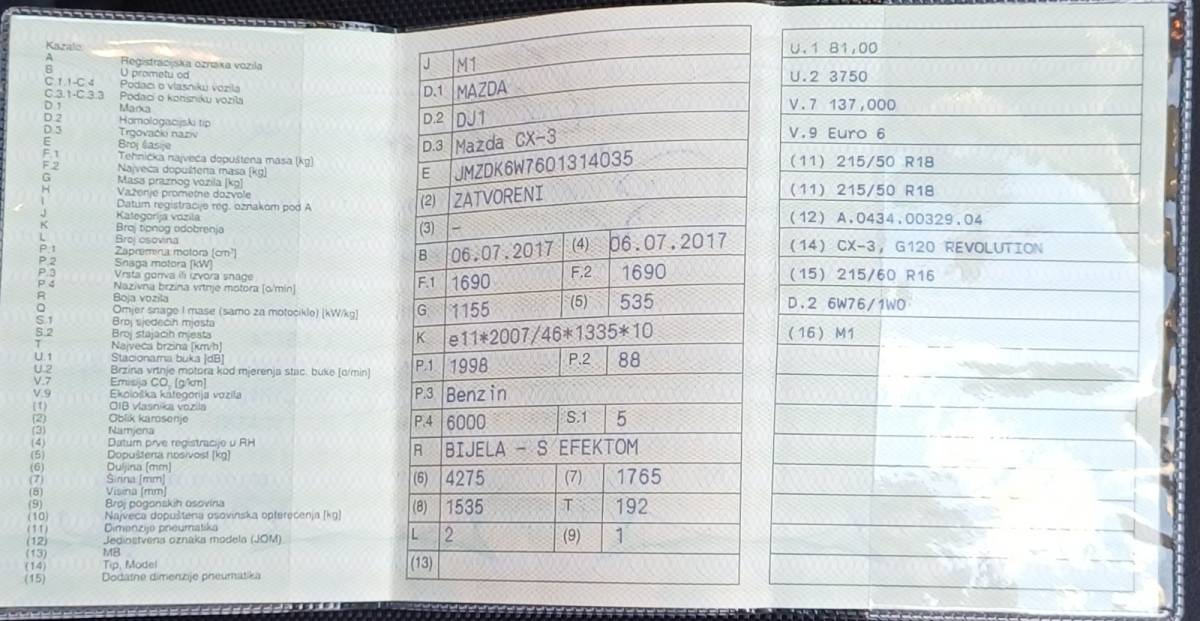 Kazalo:
A Registracijska oznaka vozila
B U prometu od
C.1.1-C.4 Podaci o vlasniku vozila
C.3.1-C.3.3 Podaci o korisniku vozila
D.1 Marka
D.2 Homologacijski tip
D.3 Trgovački naziv
E Broj šasije
F.1 Tehnička najveća dopuštena masa [kg]
F.2 Najveća dopuštena masa [kg]
G Masa praznog vozila [kg]
H Važenje prometne dozvole
I Datum registracije reg. oznakom pod A
J Kategorija vozila
K Broj tipnog odobrenja
L Broj osovina
P.1 Zapremina motora [cm³]
P.2 Snaga motora [kW]
P.3 Vrsta goriva ili izvora snage
P.4 Nazivna brzina vrtnje motora [o/min]
R Boja vozila
Q Omjer snage i mase (samo za motocikle) [kW/kg]
S.1 Broj sjedećih mjesta
S.2 Broj stajaćih mjesta
T Najveća brzina [km/h]
U.1 Stacionarna buka [dB]
U.2 Brzina vrtnje motora kod mjerenja stac. buke [o/min]
V.7 Emisija CO₂ [g/km]
V.9 Ekološka kategorija vozila
(1) OIB vlasnika vozila
(2) Oblik karoserije
(3) Namjena
(4) Datum prve registracije u RH
(5) Dopuštena nosivost [kg]
(6) Duljina [mm]
(7) Širina [mm]
(8) Visina [mm]
(9) Broj pogonskih osovina
(10) Najveća dopuštena osovinska opterećenja [kg]
(11) Dimenzije pneumatika
(12) Jedinstvena oznaka modela (JOM)
(13) MB
(14) Tip, Model
(15) Dodatne dimenzije pneumatika
J M1
D.1 MAZDA
D.2 DJ1
D.3 Mazda CX-3
E JMZDK6W7601314035
(2) ZATVORENI
(3) -
B 06.07.2017 (4) 06.07.2017
F.1 1690 F.2 1690
G 1155 (5) 535
K e11*2007/46*1335*10
P.1 1998 P.2 88
P.3 Benzin
P.4 6000 S.1 5
R BIJELA - S EFEKTOM
(6) 4275 (7) 1765
(8) 1535 T 192
L 2 (9) 1
(13)
U.1 81,00
U.2 3750
V.7 137,000
V.9 Euro 6
(11) 215/50 R18
(11) 215/50 R18
(12) A.0434.00329.04
(14) CX-3, G120 REVOLUTION
(15) 215/60 R16
D.2 6W76/1W0
(16) M1